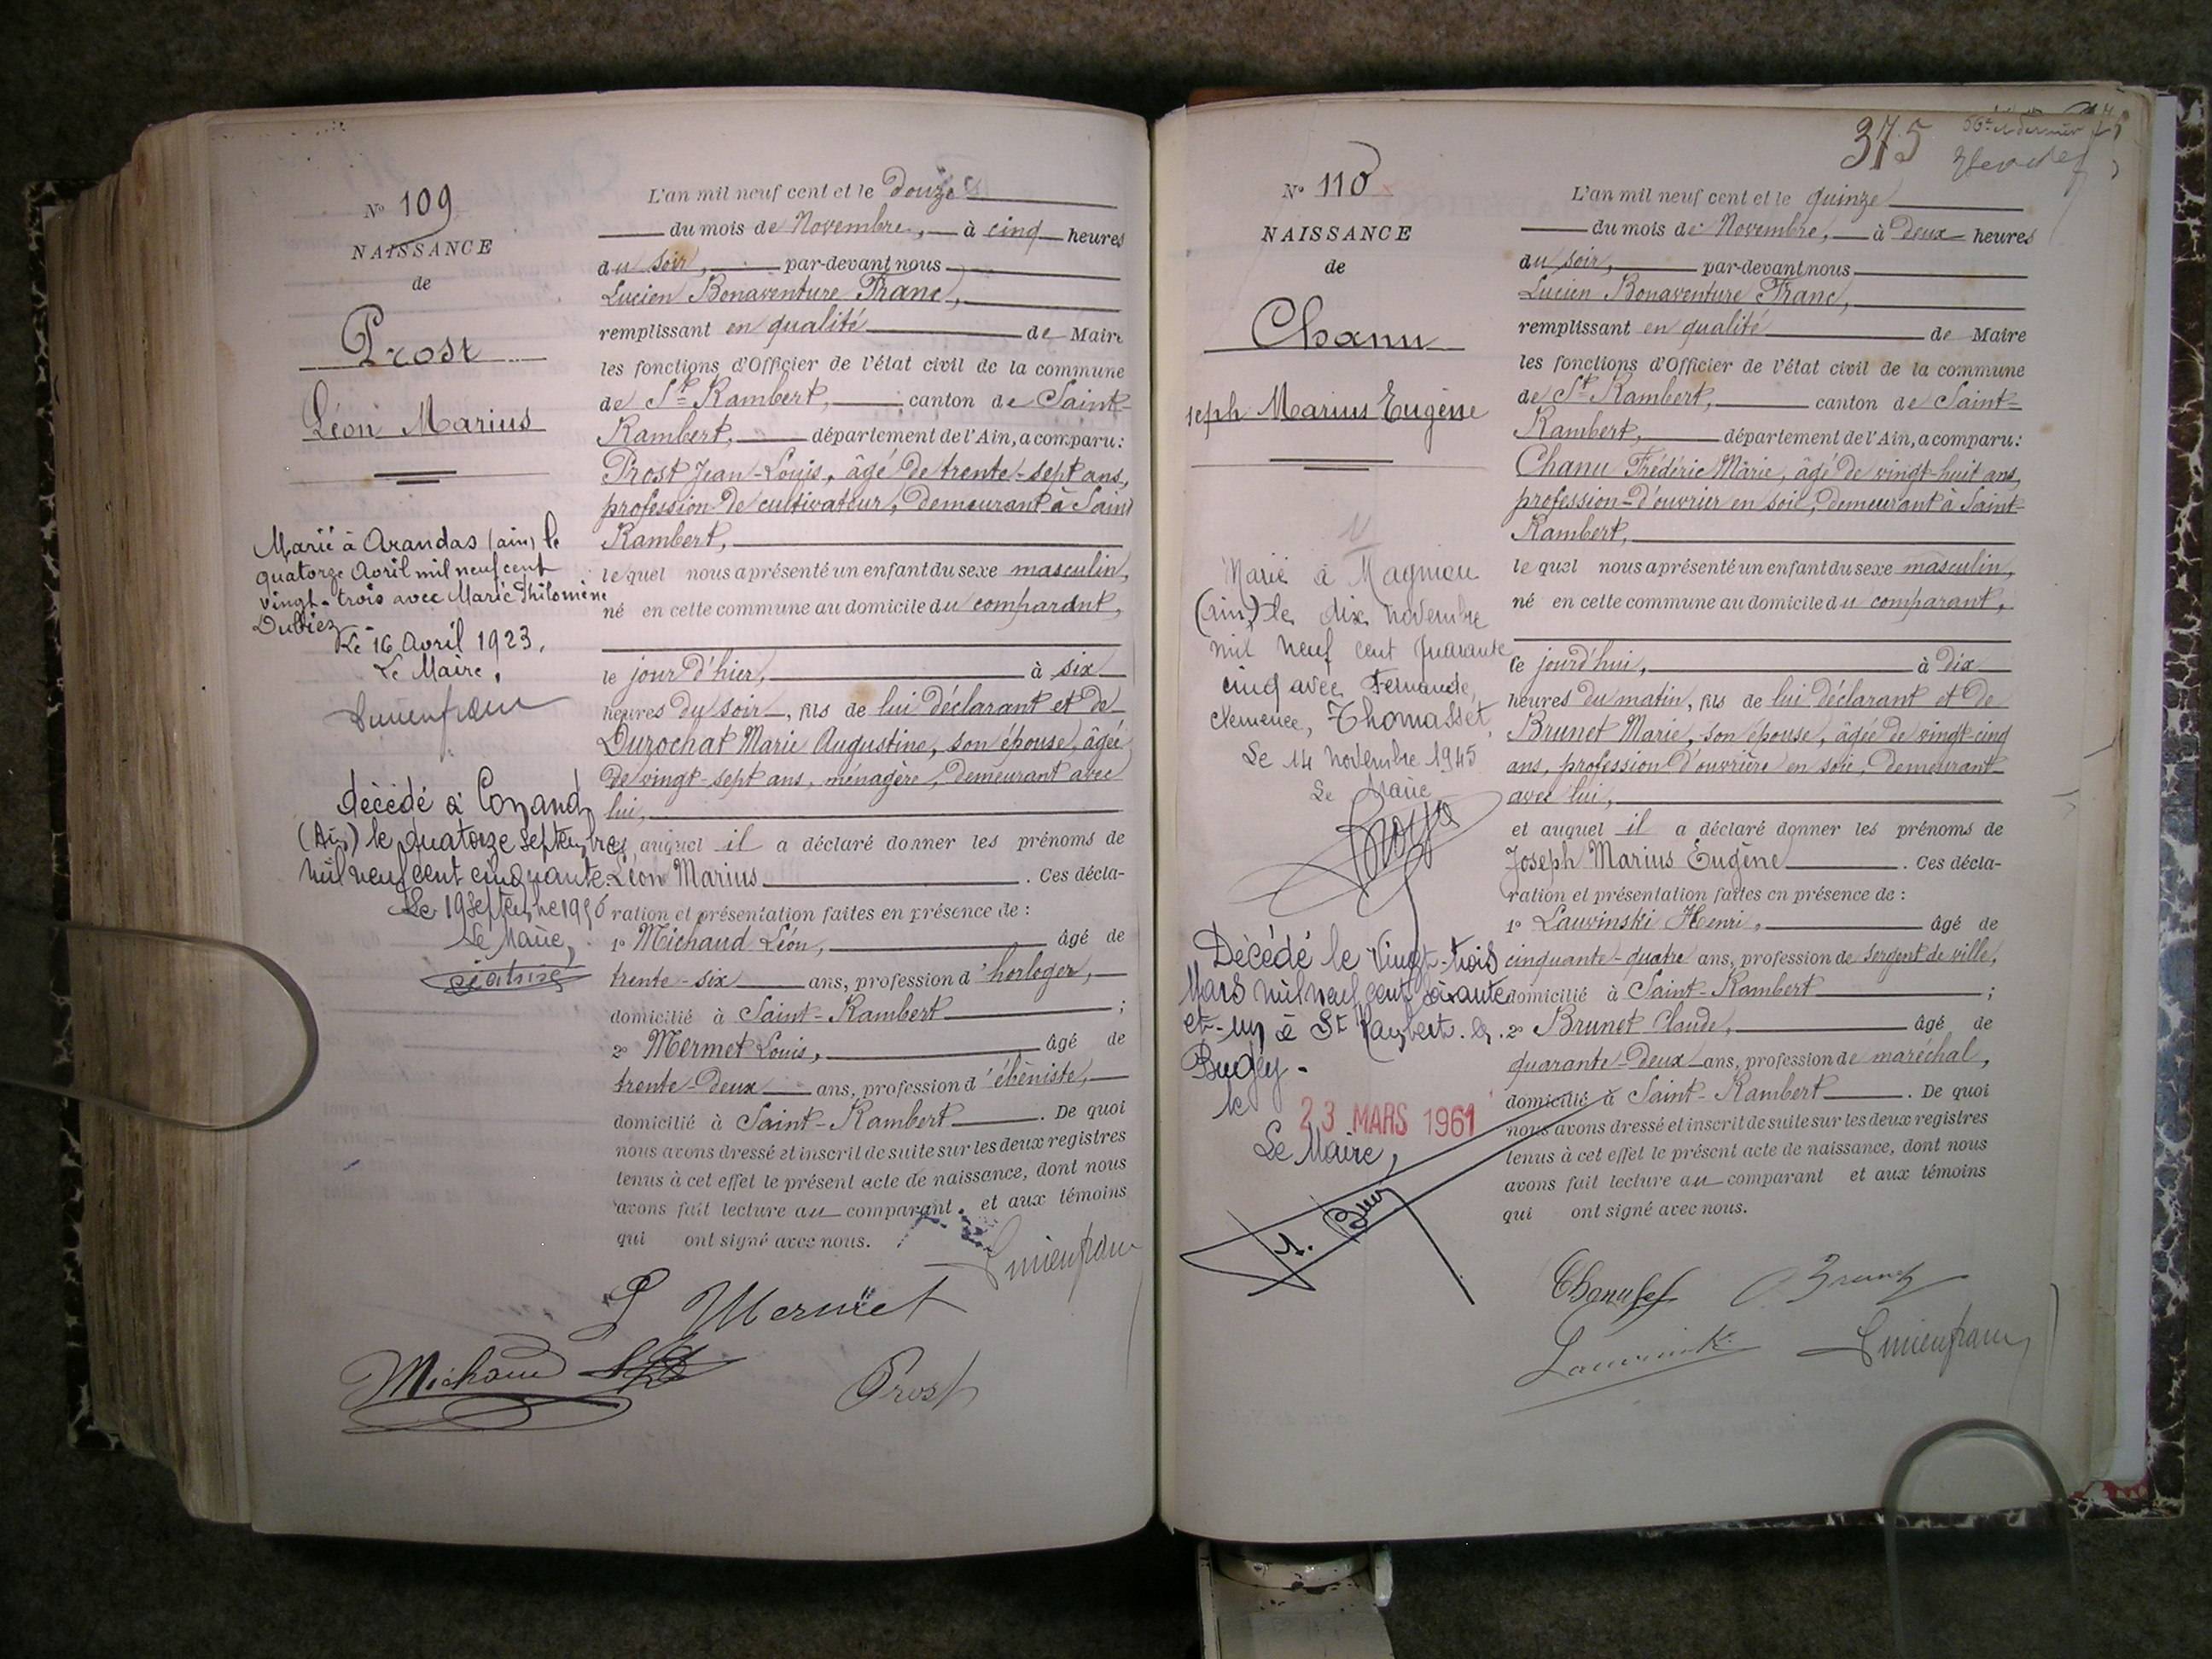 Nº 109
NAISSANCE
de
Prost
Léon Marius
Marié à Arandas (ain) le
quatorze Avril mil neuf cent
vingt-trois avec Marie Philomène
Dubiez
Le 16 Avril 1923.
Le Maire,
Lucienfranc
décédé à Conand
(Ain) le quatorze septembre
mil neuf cent cinquante.
Le 19 septembre 1950
Le Maire,
L'an mil neuf cent et le douze
du mois de Novembre, à cinq heures
du soir, par-devant nous
Lucien Bonaventure Franc,
remplissant en qualité de Maire
les fonctions d'Officier de l'état civil de la commune
de St Rambert, canton de Saint-
Rambert, département de l'Ain, a comparu:
Prost Jean-Louis, âgé de trente-sept ans,
profession de cultivateur, demeurant à Saint
Rambert,
lequel nous a présenté un enfant du sexe masculin,
né en cette commune au domicile du comparant,
le jour d'hier, à six
heures du soir, fils de lui déclarant et de
Durochat Marie Augustine, son épouse, âgée
de vingt-sept ans, ménagère, demeurant avec
lui,
et auquel il a déclaré donner les prénoms de
Léon Marius. Ces décla-
ration et présentation faites en présence de :
1º Michaud Léon, âgé de
trente-six ans, profession d'horloger,
domicilié à Saint-Rambert ;
2º Mermet Louis, âgé de
trente-deux ans, profession d'ébéniste,
domicilié à Saint-Rambert. De quoi
nous avons dressé et inscrit de suite sur les deux registres
tenus à cet effet le présent acte de naissance, dont nous
avons fait lecture au comparant. et aux témoins
qui ont signé avec nous.
Lucienfranc
L Mermet
Michaud
Prost
375
Nº 110
NAISSANCE
de
Chanu
seph Marius Eugène
Marié à Magnieu
(ain) le dix novembre
mil neuf cent quarante
cinq avec Fernande,
Clemence, Thomasset,
Le 14 novembre 1945
Le Maire
Décédé le vingt-trois
Mars mil neuf cent soixante
et-un à St Rambert. en.
Bugey.
le
23 MARS 1961
Le Maire,
L'an mil neuf cent et le quinze
du mois de Novembre, à deux heures
du soir, par-devant nous
Lucien Bonaventure Franc,
remplissant en qualité de Maire
les fonctions d'Officier de l'état civil de la commune
de St Rambert, canton de Saint-
Rambert, département de l'Ain, a comparu:
Chanu Frédéric Marie, âgé de vingt-huit ans,
profession d'ouvrier en soie, demeurant à Saint-
Rambert,
lequel nous a présenté un enfant du sexe masculin,
né en cette commune au domicile du comparant,
le jourd'hui, à dix
heures du matin, fils de lui déclarant et de
Brunet Marie, son épouse, âgée de vingt-cinq
ans, profession d'ouvrière en soie, demeurant
avec lui,
et auquel il a déclaré donner les prénoms de
Joseph Marius Eugène. Ces décla-
ration et présentation faites en présence de :
1º Lauvinski Henri, âgé de
cinquante-quatre ans, profession de sergent de ville,
domicilié à Saint-Rambert ;
2º Brunet Claude, âgé de
quarante-deux ans, profession de maréchal,
domicilié à Saint-Rambert. De quoi
nous avons dressé et inscrit de suite sur les deux registres
tenus à cet effet le présent acte de naissance, dont nous
avons fait lecture au comparant et aux témoins
qui ont signé avec nous.
Brunet
Lucienfranc